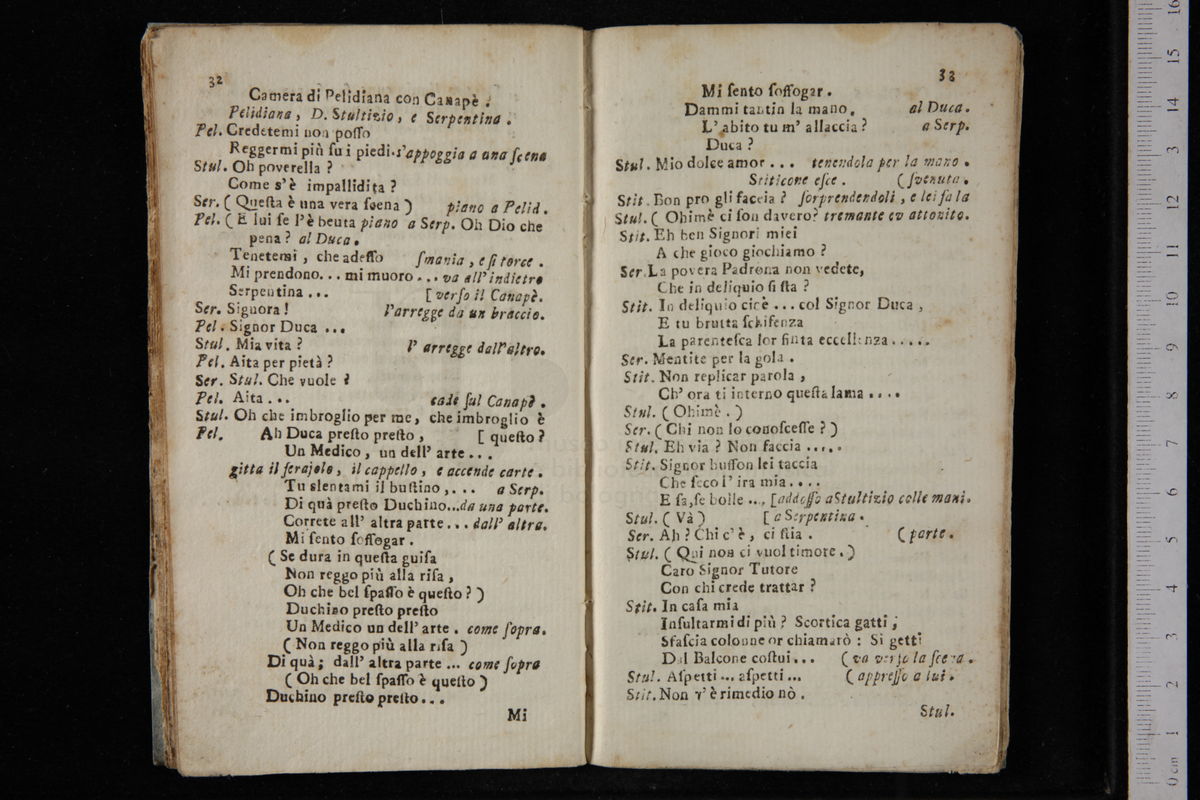 32
Camera di Pelidiana con Canapè.
Pelidiana, D. Stultizio, e Serpentina.
Pel. Credetemi non poſſo
Reggermi più ſu i piedi.s'appoggia a una ſcena
Stul. Oh poverella?
Come s'è impallidita?
Ser. (Queſta è una vera ſcena) piano a Pelid.
Pel. (E lui ſe l'è beuta piano a Serp. Oh Dio che
pena? al Duca.
Tenetemi, che adeſſo ſmania, e ſi torce.
Mi prendono... mi muoro... va all'indietro
Serpentina... [verſo il Canapè.
Ser. Signora! l'arregge da un braccio.
Pel. Signor Duca...
Stul. Mia vita? l'arregge dall'altro.
Pel. Aita per pietà?
Ser. Stul. Che vuole?
Pel. Aita... cade ſul Canapè.
Stul. Oh che imbroglio per me, che imbroglio è
Pel. Ah Duca preſto preſto, [queſto?
Un Medico, un dell'arte...
gitta il ferajolo, il cappello, e accende carte.
Tu slentami il buſtino,... a Serp.
Di quà preſto Duchino...da una parte.
Correte all'altra parte... dall'altra.
Mi ſento ſoffogar.
(Se dura in queſta guiſa
Non reggo più alla riſa,
Oh che bel ſpaſſo è queſto?)
Duchino preſto preſto
Un Medico un dell'arte. come ſopra.
(Non reggo più alla riſa)
Di quà; dall'altra parte... come ſopra
(Oh che bel ſpaſſo è queſto)
Duchino preſto preſto...
Mi
33
Mi ſento ſoffogar.
Dammi tantin la mano, al Duca.
L'abito tu m'allaccia? a Serp.
Duca?
Stul. Mio dolce amor... tenendola per la mano.
Stiticone eſce. (ſvenuta.
Stit. Bon pro gli faccia? ſorprendendoli, e lei fa la
Stul. (Ohimè ci ſon davero? tremante ed attonito.
Stit. Eh ben Signori miei
A che gioco giochiamo?
Ser.La povera Padrona non vedete,
Che in deliquio ſi ſta?
Stit. In deliquio cioè... col Signor Duca,
E tu brutta ſchifenza
La parenteſca lor finta eccellenza.....
Ser. Mentite per la gola.
Stit. Non replicar parola,
Ch'ora ti interno queſta lama....
Stul. (Ohimè.)
Ser. (Chi non lo conoſceſſe?)
Stul. Eh via? Non faccia.....
Stit. Signor buffon lei taccia
Che ſeco l'ira mia....
E ſa,ſe bolle.... [addoſſo a Stultizio colle mani.
Stul. (Và) [a Serpentina.
Ser. Ah? Chi c'è, ci ſtia. (parte.
Stul. (Qui non ci vuol timore.)
Caro Signor Tutore
Con chi crede trattar?
Stit. In caſa mia
Inſultarmi di più? Scortica gatti;
Sfaſcia colonne or chiamarò: Si getti
Dal Balcone coſtui... (va verſo la ſcena.
Stul. Aſpetti... aſpetti... (appreſſo a lui.
Stit. Non v'è rimedio nò.
Stul.